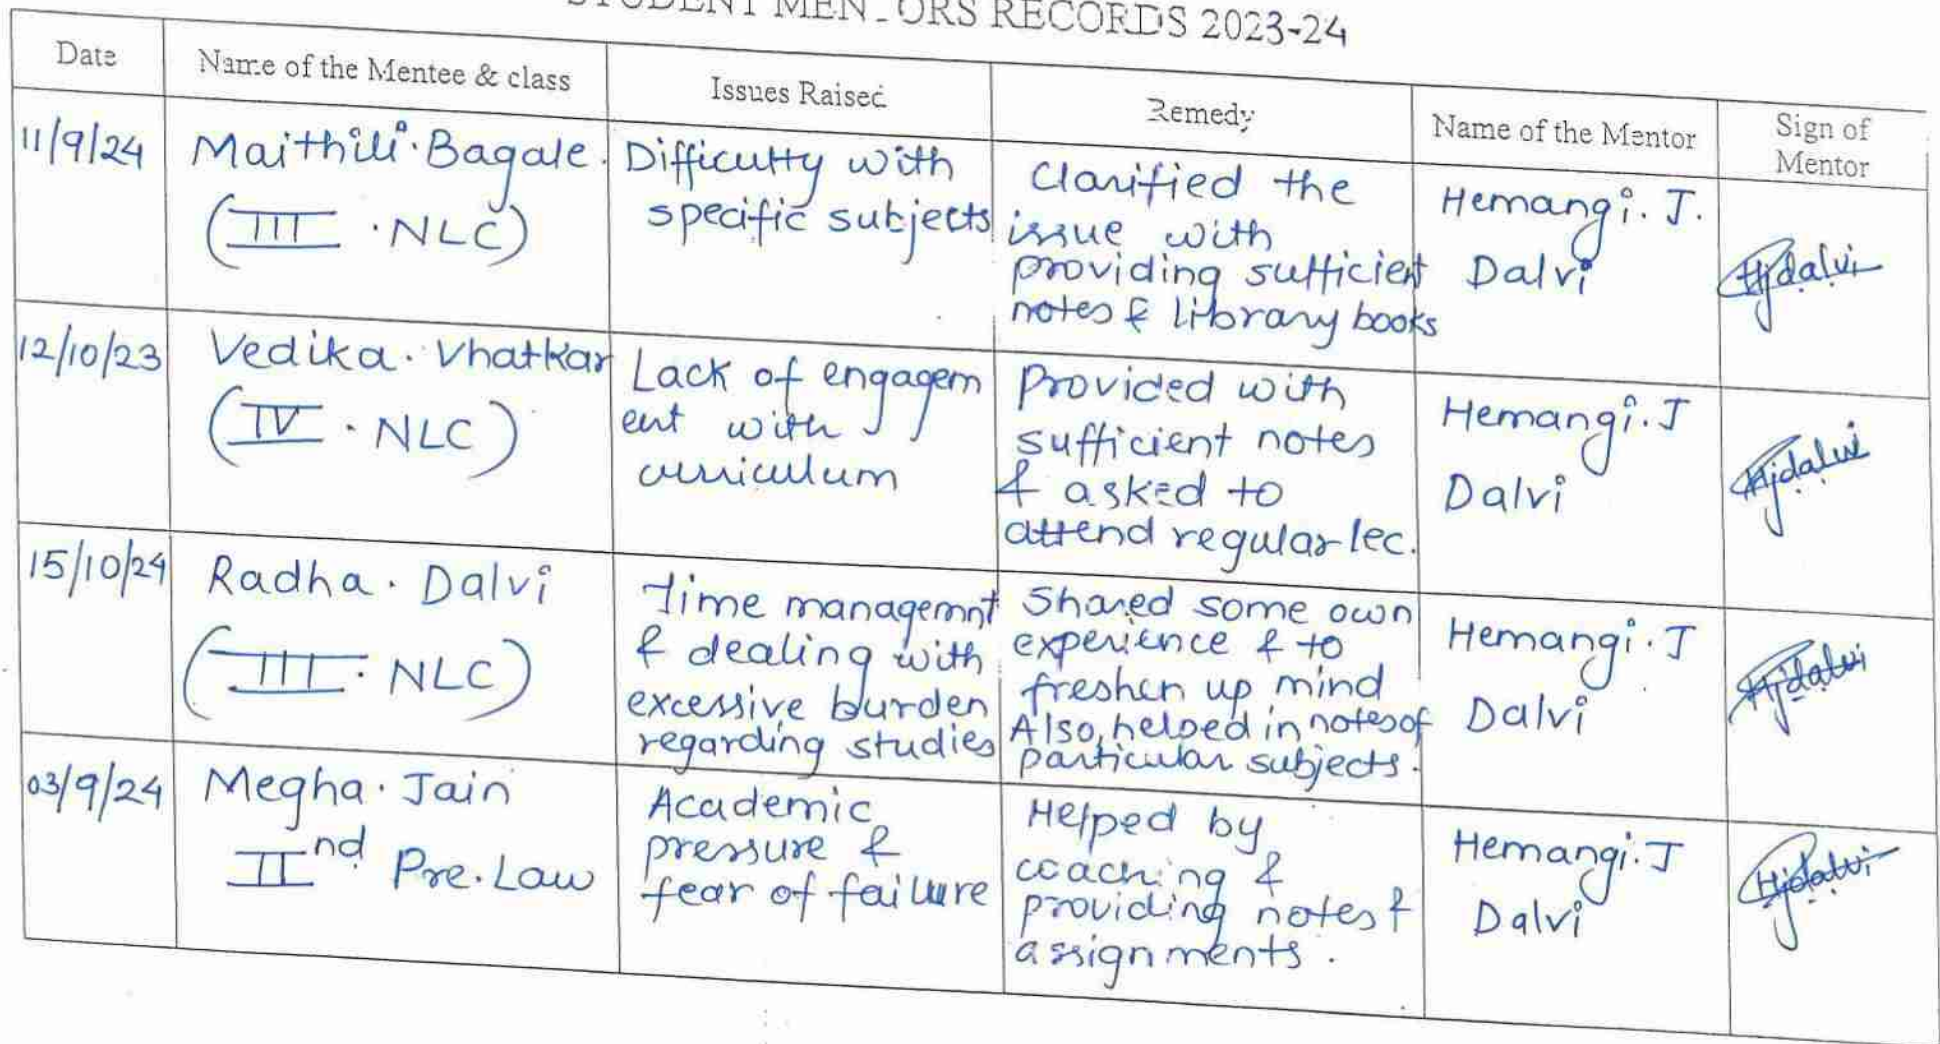 STUDENT MENTORS RECORDS 2023-24
Date
Name of the Mentee & class
Issues Raised
Remedy
Name of the Mentor
Sign of
Mentor
11/9/24
Maithili. Bagale.
(III . NLC)
Difficulty with
specific subjects
Clarified the
issue with
providing sufficient
notes & library books
Hemangi. J.
Dalvi
Hjdalvi
12/10/23
Vedika. Vhatkar
(IV . NLC)
Lack of engagem
ent with
curriculum
Provided with
sufficient notes
& asked to
attend regular lec.
Hemangi. J
Dalvi
Hjdalvi
15/10/24
Radha. Dalvi
(III. NLC)
Time managemnt
& dealing with
excessive burden
regarding studies
Shared some own
experience & to
freshen up mind
Also, helped in notes of
particular subjects.
Hemangi. J
Dalvi
Hjdalvi
03/9/24
Megha. Jain
IInd Pre. Law
Academic
pressure &
fear of failure
Helped by
coaching &
providing notes &
assignments.
Hemangi. J
Dalvi
Hjdalvi